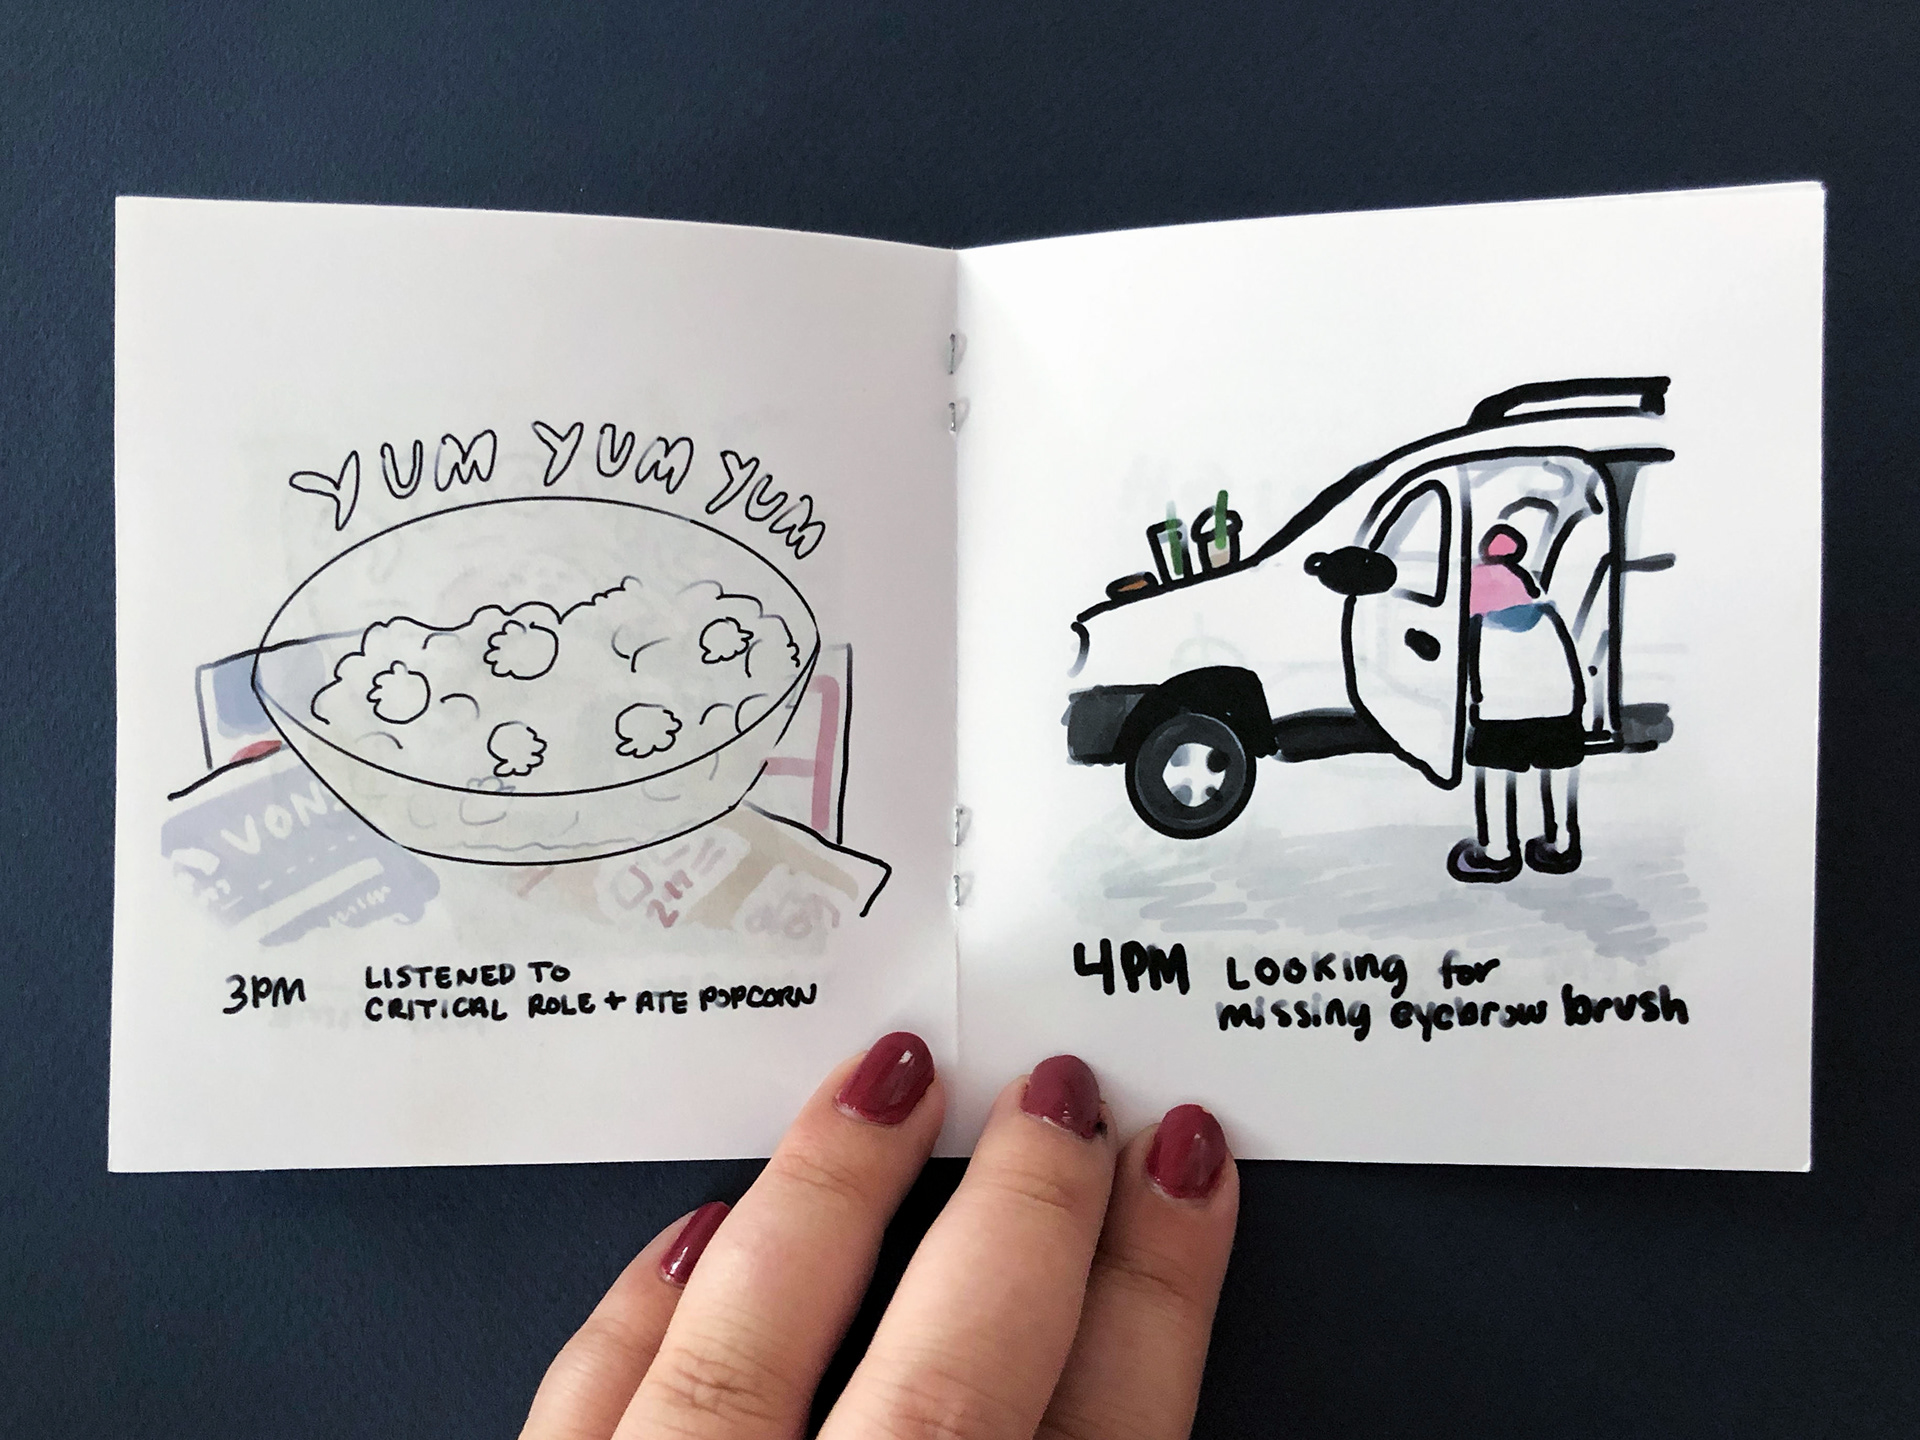 YUM YUM YUM
3PM LISTENED TO
CRITICAL ROLE + ATE POPCORN
4PM LOOKING for
missing eyebrow brush